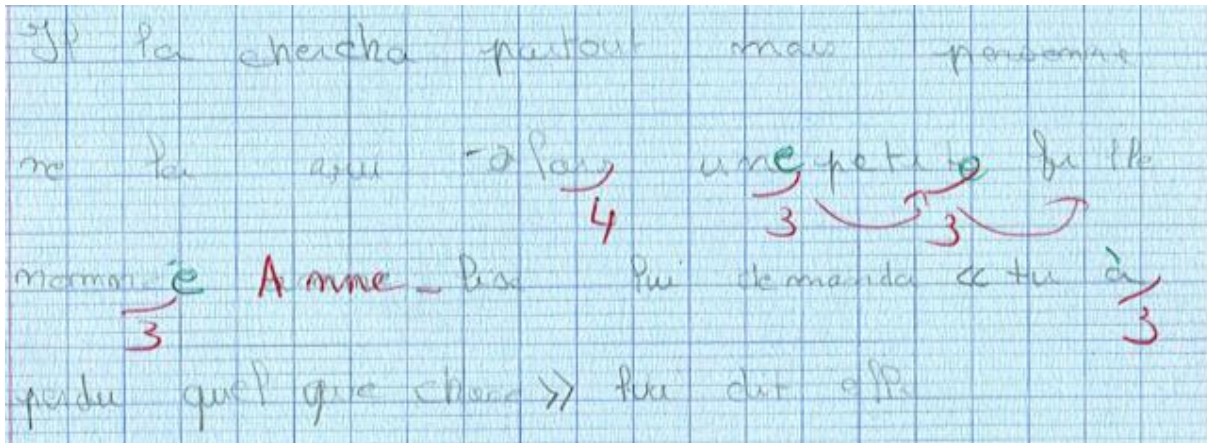 Il la chercha partout mais personne
ne la Alors, une petite fille
4 3 3
nommée Anne-Lise lui demanda « tu à
3 3
perdu quel que chose » lui dit elle